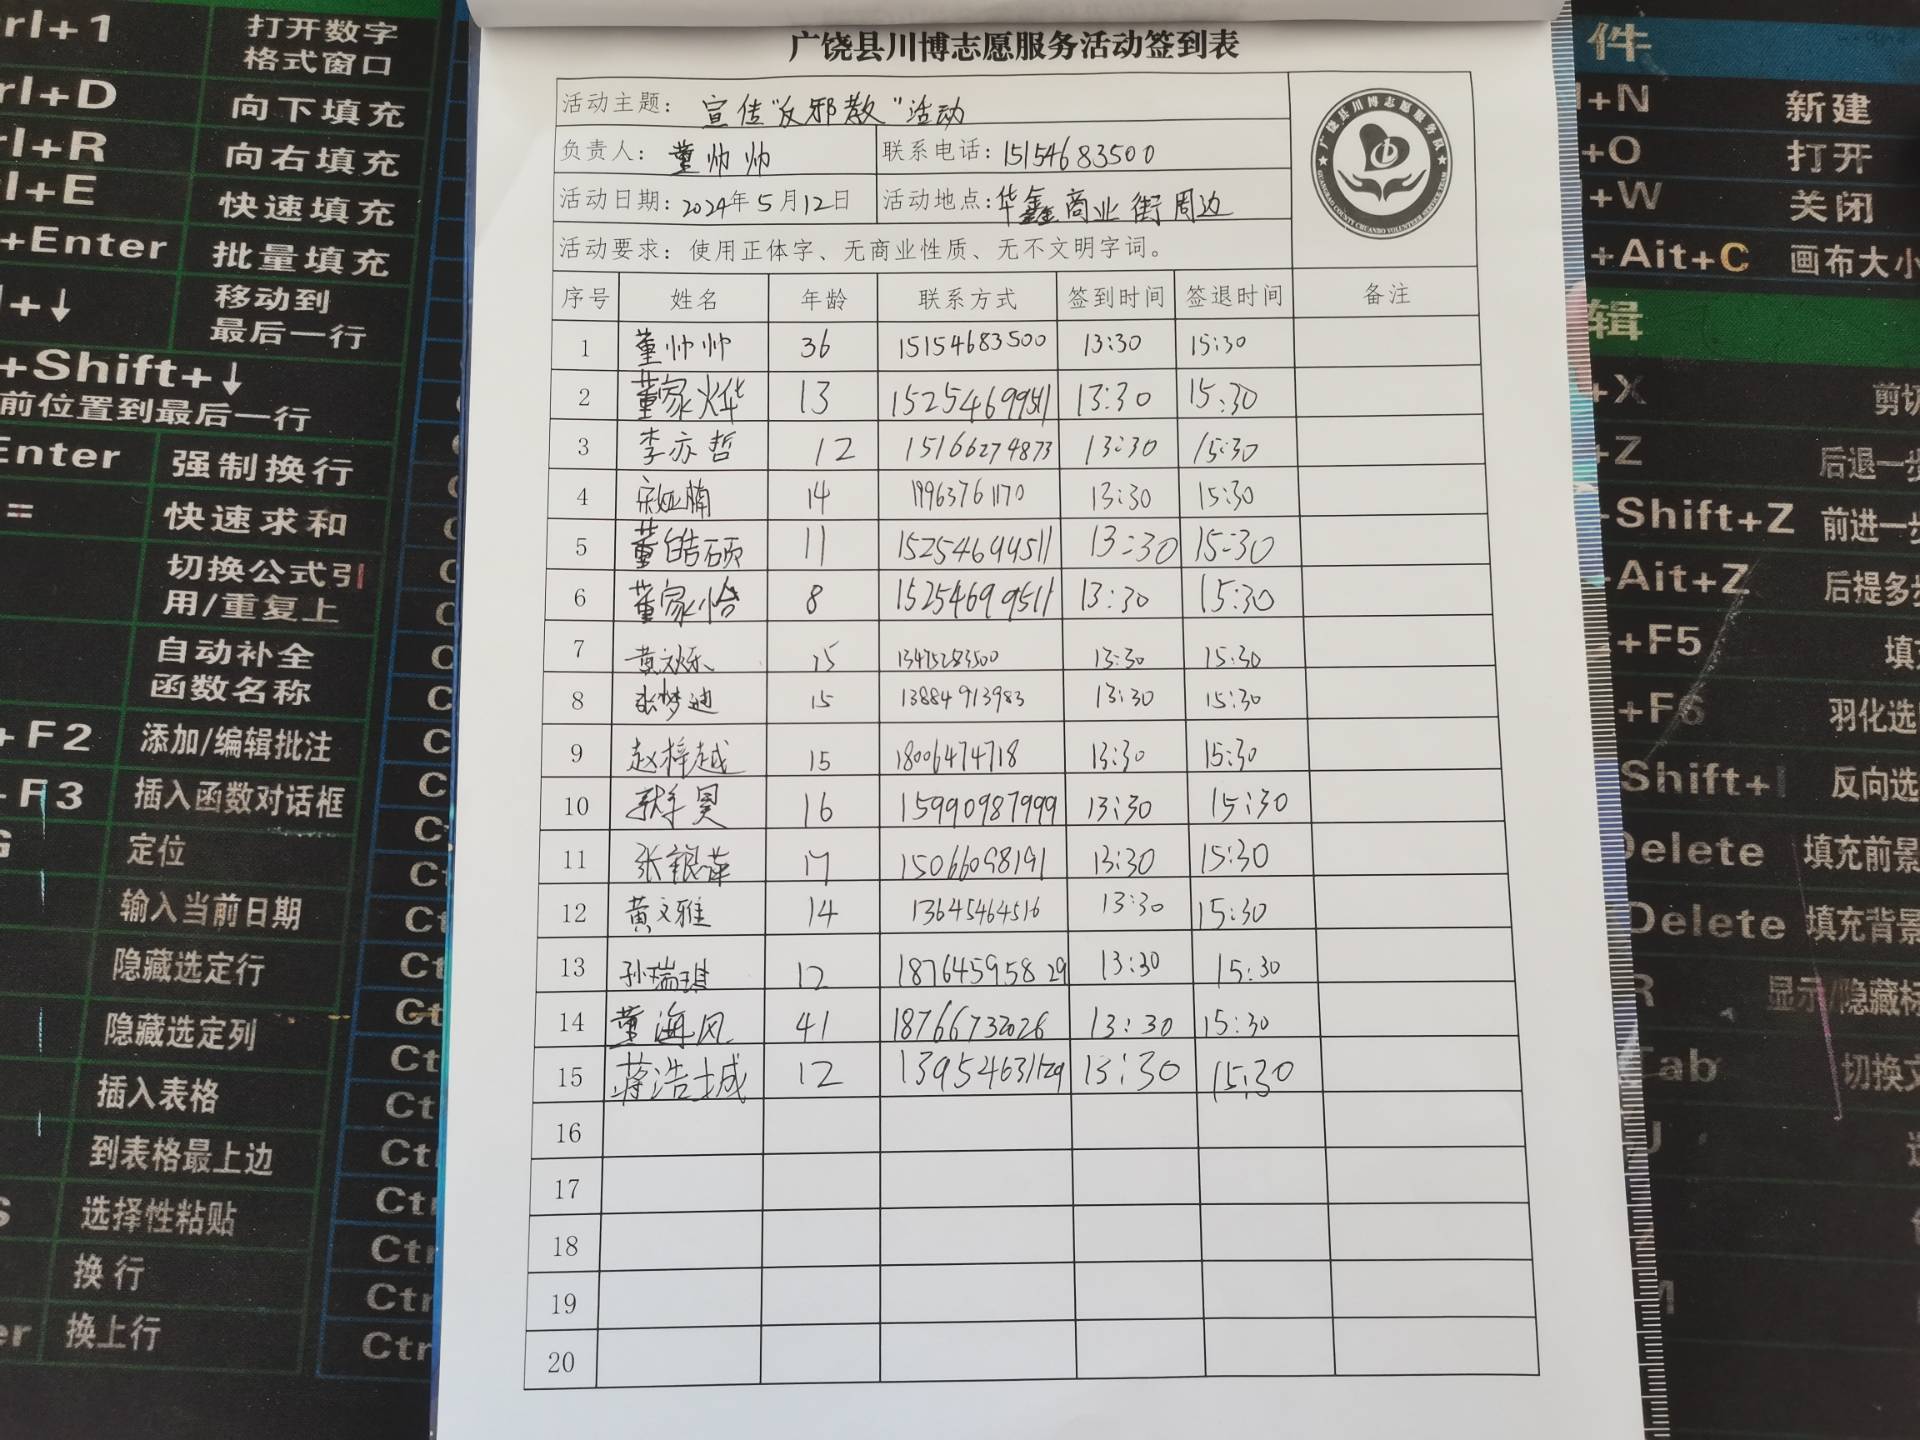 广饶县川博志愿服务活动签到表
活动主题：宣传“反邪教”活动
负责人：董帅帅 联系电话：15154683500
活动日期：2024年5月12日 活动地点：华鑫商业街周边
活动要求：使用正体字、无商业性质、无不文明字词。
广饶县川博志愿服务队
序号 姓名 年龄 联系方式 签到时间 签退时间 备注
1 董帅帅 36 15154683500 13:30 15:30
2 董家烨 13 15254699511 13:30 15:30
3 李亦哲 12 15166274873 13:30 15:30
4 14 19963761170 13:30 15:30
5 董皓硕 11 15254699511 13:30 15:30
6 董家怡 8 15254699511 13:30 15:30
7 15 13475283500 13:30 15:30
8 张梦迪 15 13884913983 13:30 15:30
9 赵梓越 15 18006474718 13:30 15:30
10 16 15990987999 13:30 15:30
11 张银萍 17 15066098191 13:30 15:30
12 黄文雅 14 13645464516 13:30 15:30
13 孙瑞琪 12 18764595829 13:30 15:30
14 董海风 41 18766732026 13:30 15:30
15 蒋浩城 12 13:30 15:30
16
17
18
19
20
rl+1 打开数字
格式窗口
rl+D 向下填充
rl+R 向右填充
l+E 快速填充
+Enter 批量填充
+↓ 移动到
最后一行
+Shift+↓
前位置到最后一行
Enter 强制换行
= 快速求和
切换公式引
用/重复上
自动补全
函数名称
+F2 添加/编辑批注
+F3 插入函数对话框
G 定位
输入当前日期
隐藏选定行
隐藏选定列
插入表格
到表格最上边
S 选择性粘贴
换行
er 换上行
件
+N 新建
+O 打开
+W 关闭
+Ait+C 画布大小
辑
+X 剪切
+Z 后退一步
+Shift+Z 前进一步
Ait+Z 后提多步
+F5 填充
+F6 羽化选
Shift+I 反向选
Delete 填充前景
Delete 填充背景
R 显示/隐藏标
Tab 切换文